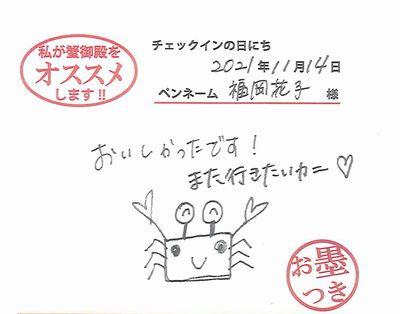 私が蟹御殿を
オススメ
します!!
チェックインの日にち
2021年11月14日
ペンネーム 福岡花子 様
おいしかったです!
また行きたいカニ♡
お墨
つき